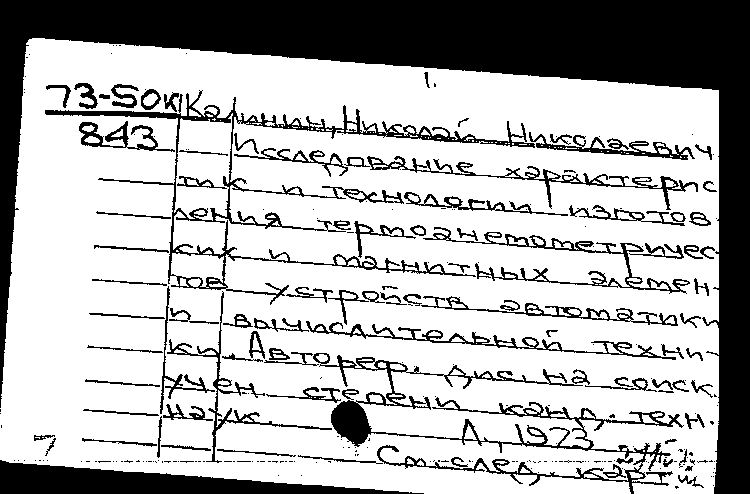 1.
73-50к Калинин, Николай Николаевич
843 Исследование характерис
тик и технологии изготов
ления термоанемометричес-
ких и магнитных элемен-
тов устройств автоматики
и вычислительной техни-
ки. Автореф. дис. на соиск.
учен. степени канд. техн.
наук. Л., 1973
См. след. карт.